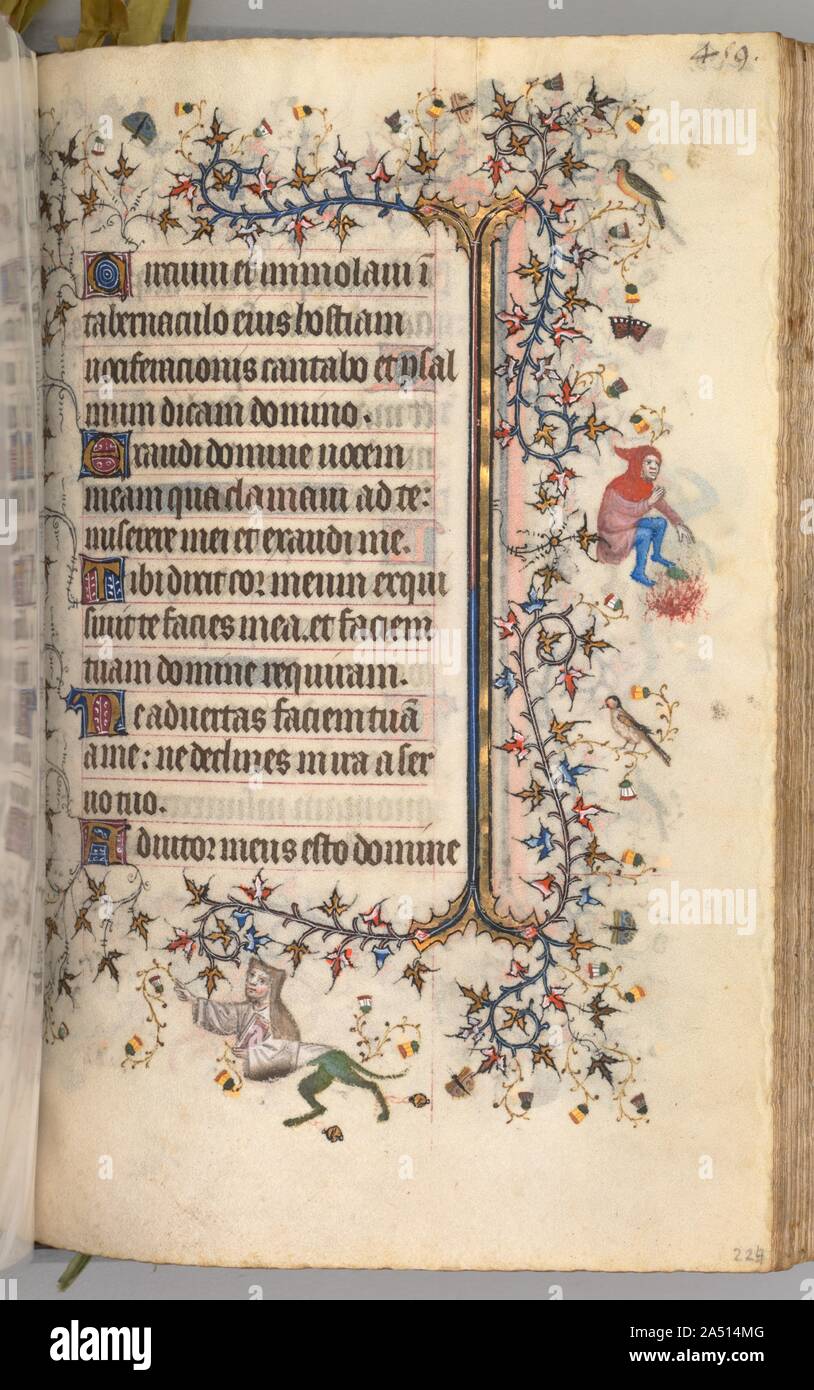 459.
Circuiui et immolaui i
tabernaculo eius hostiam
uociferacionis cantabo et psal
mum dicam domino.
Exaudi domine uocem
meam qua clamaui ad te:
miserere mei et exaudi me.
Tibi dixit cor meum exqui
siuit te facies mea. et faciem
tuam domine requiram.
Ne aduertas faciem tuā
a me: ne declines in ira a ser
uo tuo.
Adiutor meus esto domine
224
alamy
alamy
Image ID: 2A514MG
www.alamy.com